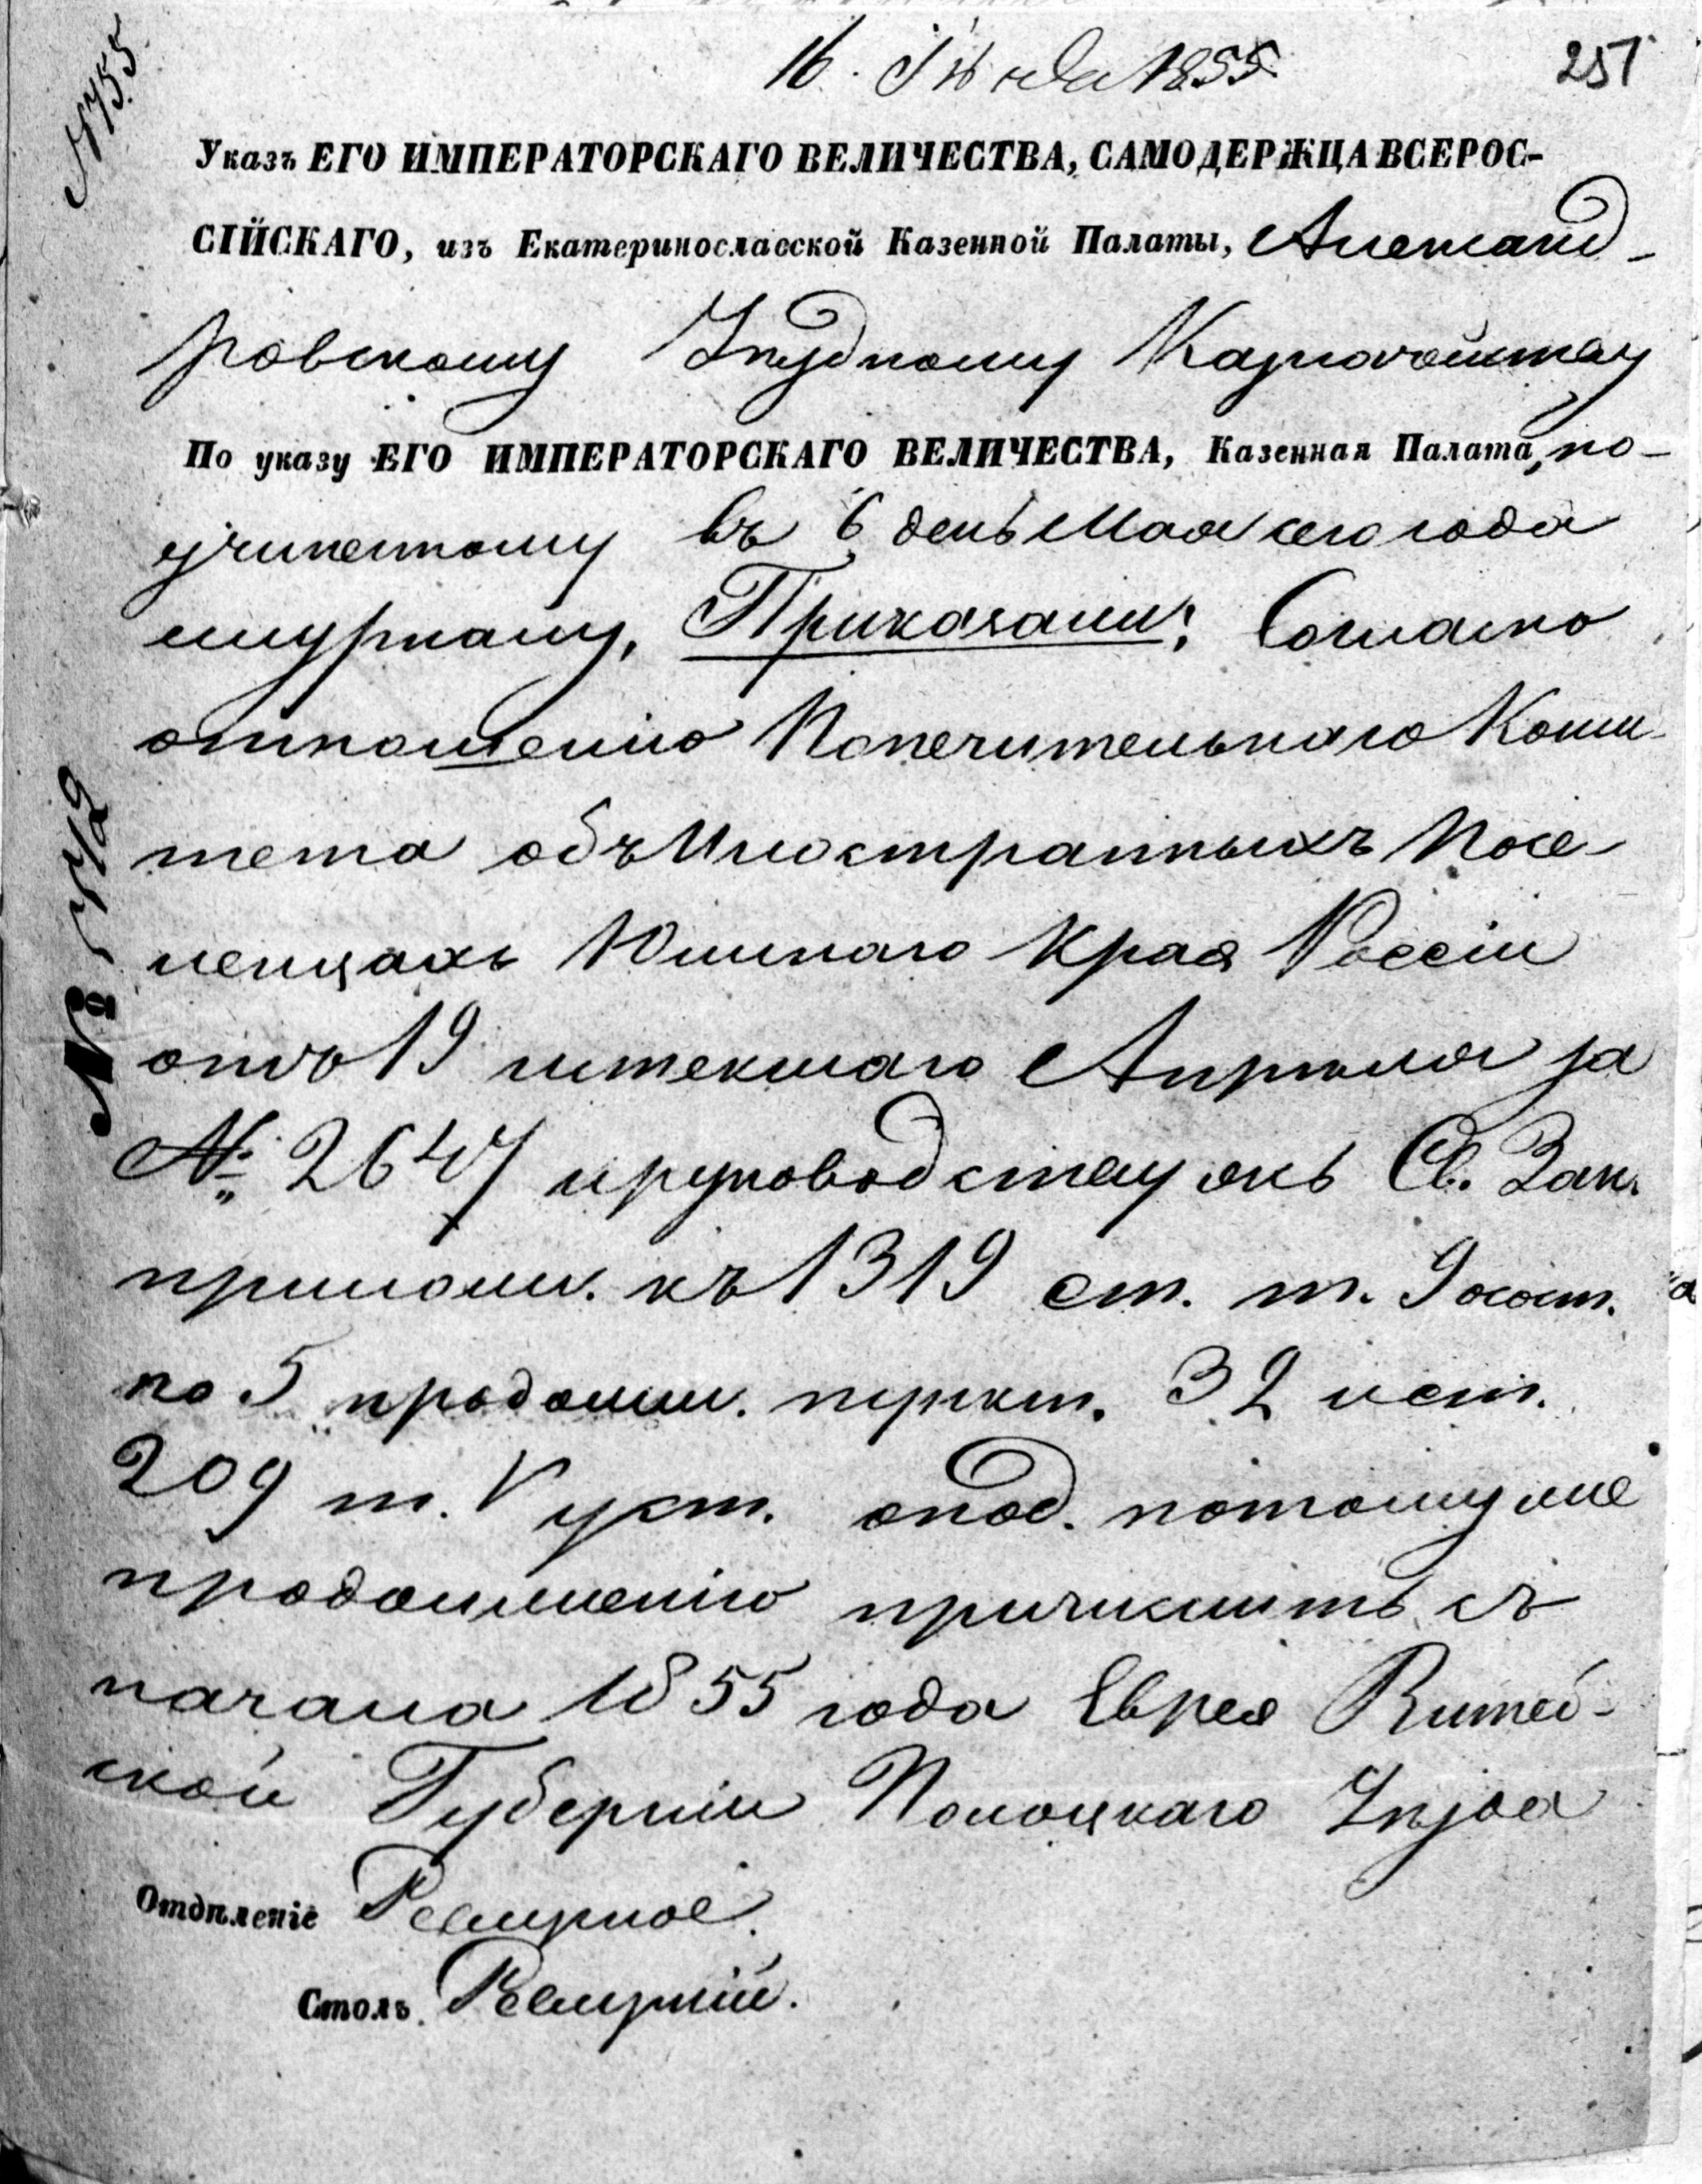 16. Іюня 1855.
251
Указъ ЕГО ИМПЕРАТОРСКАГО ВЕЛИЧЕСТВА, САМОДЕРЖЦА ВСЕРОС-
СІЙСКАГО, изъ Екатеринославской Казенной Палаты, Александ-
ровскому Уѣздному Казначейству
По указу ЕГО ИМПЕРАТОРСКАГО ВЕЛИЧЕСТВА, Казенная Палата, по
учиненному въ 6 день Мая сего года
журналу, Приказали: Согласно
отношенію Попечительнаго Коми-
тета объ Иностранныхъ Посе-
ленцахъ Южнаго Края Россіи
отъ 19 истекшаго Апрѣля за
№ 2647 и руководствуясь Св. Зак.
прилож. къ 1319 ст. т. 9 о сост.
по 5 продолж. пункт. 32 и ст.
209 т. V уст. о под. по тому же
продолженію причислить съ
начала 1855 года Еврея Витеб-
ской Губерніи Полоцкаго Уѣзда
Отдѣленіе Ревизское.
Столъ Ревизскій.
№